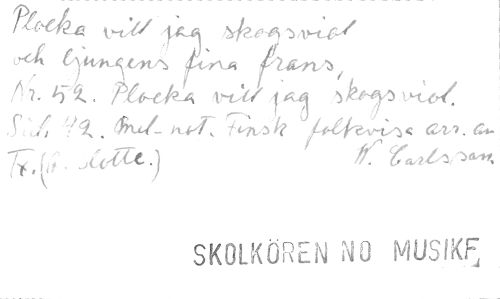 Plocka vill jag skogsviol
och ljungens fina frans,
Nr. 52. Plocka vill jag skogsviol.
Sid. 42. Mel-not. Finsk folkvisa arr. av
Tx. W. Carlsson
SKOLKÖREN NO MUSIKF